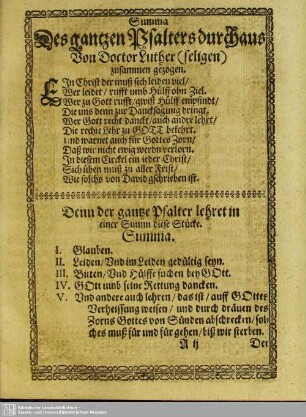 Summa
Des gantzen Psalters durchaus
Von Doctor Luther (seligen)
zusammen gezogen.
EIn Christ der muß sich leiden viel/
Wer leidet/ rufft umb Hülff ohn Ziel.
Wer zu Gott rufft/ gwiß Hülff empfindt/
Die uns denn zur Dancksagung dringt.
Wer Gott recht danckt/ auch andre lehrt/
Die rechte Lehr zu GOTT bekehrt.
Und warnet auch für Gottes Zorn/
Daß wir nicht ewig werdn verlorn.
In diesem Circkel ein ieder Christ/
Sich üben muß zu aller Frist/
Wie solchs von David gschrieben ist.
Denn der gantze Psalter lehret in
einer Summ diese Stücke.
Summa.
I. Glauben.
II. Leiden/ Und im Leiden gedültig seyn.
III. Bitten/ Und Hülffe suchen bey GOtt.
IV. GOtt umb seine Rettung dancken.
V. Und andere auch lehren/ das ist/ auff GOttes
Verheissung weisen/ und durch dräuen des
Zorns Gottes von Sünden abschrecken/ sol-
ches muß für und für gehen/ biß wir sterben.
A ij
Der